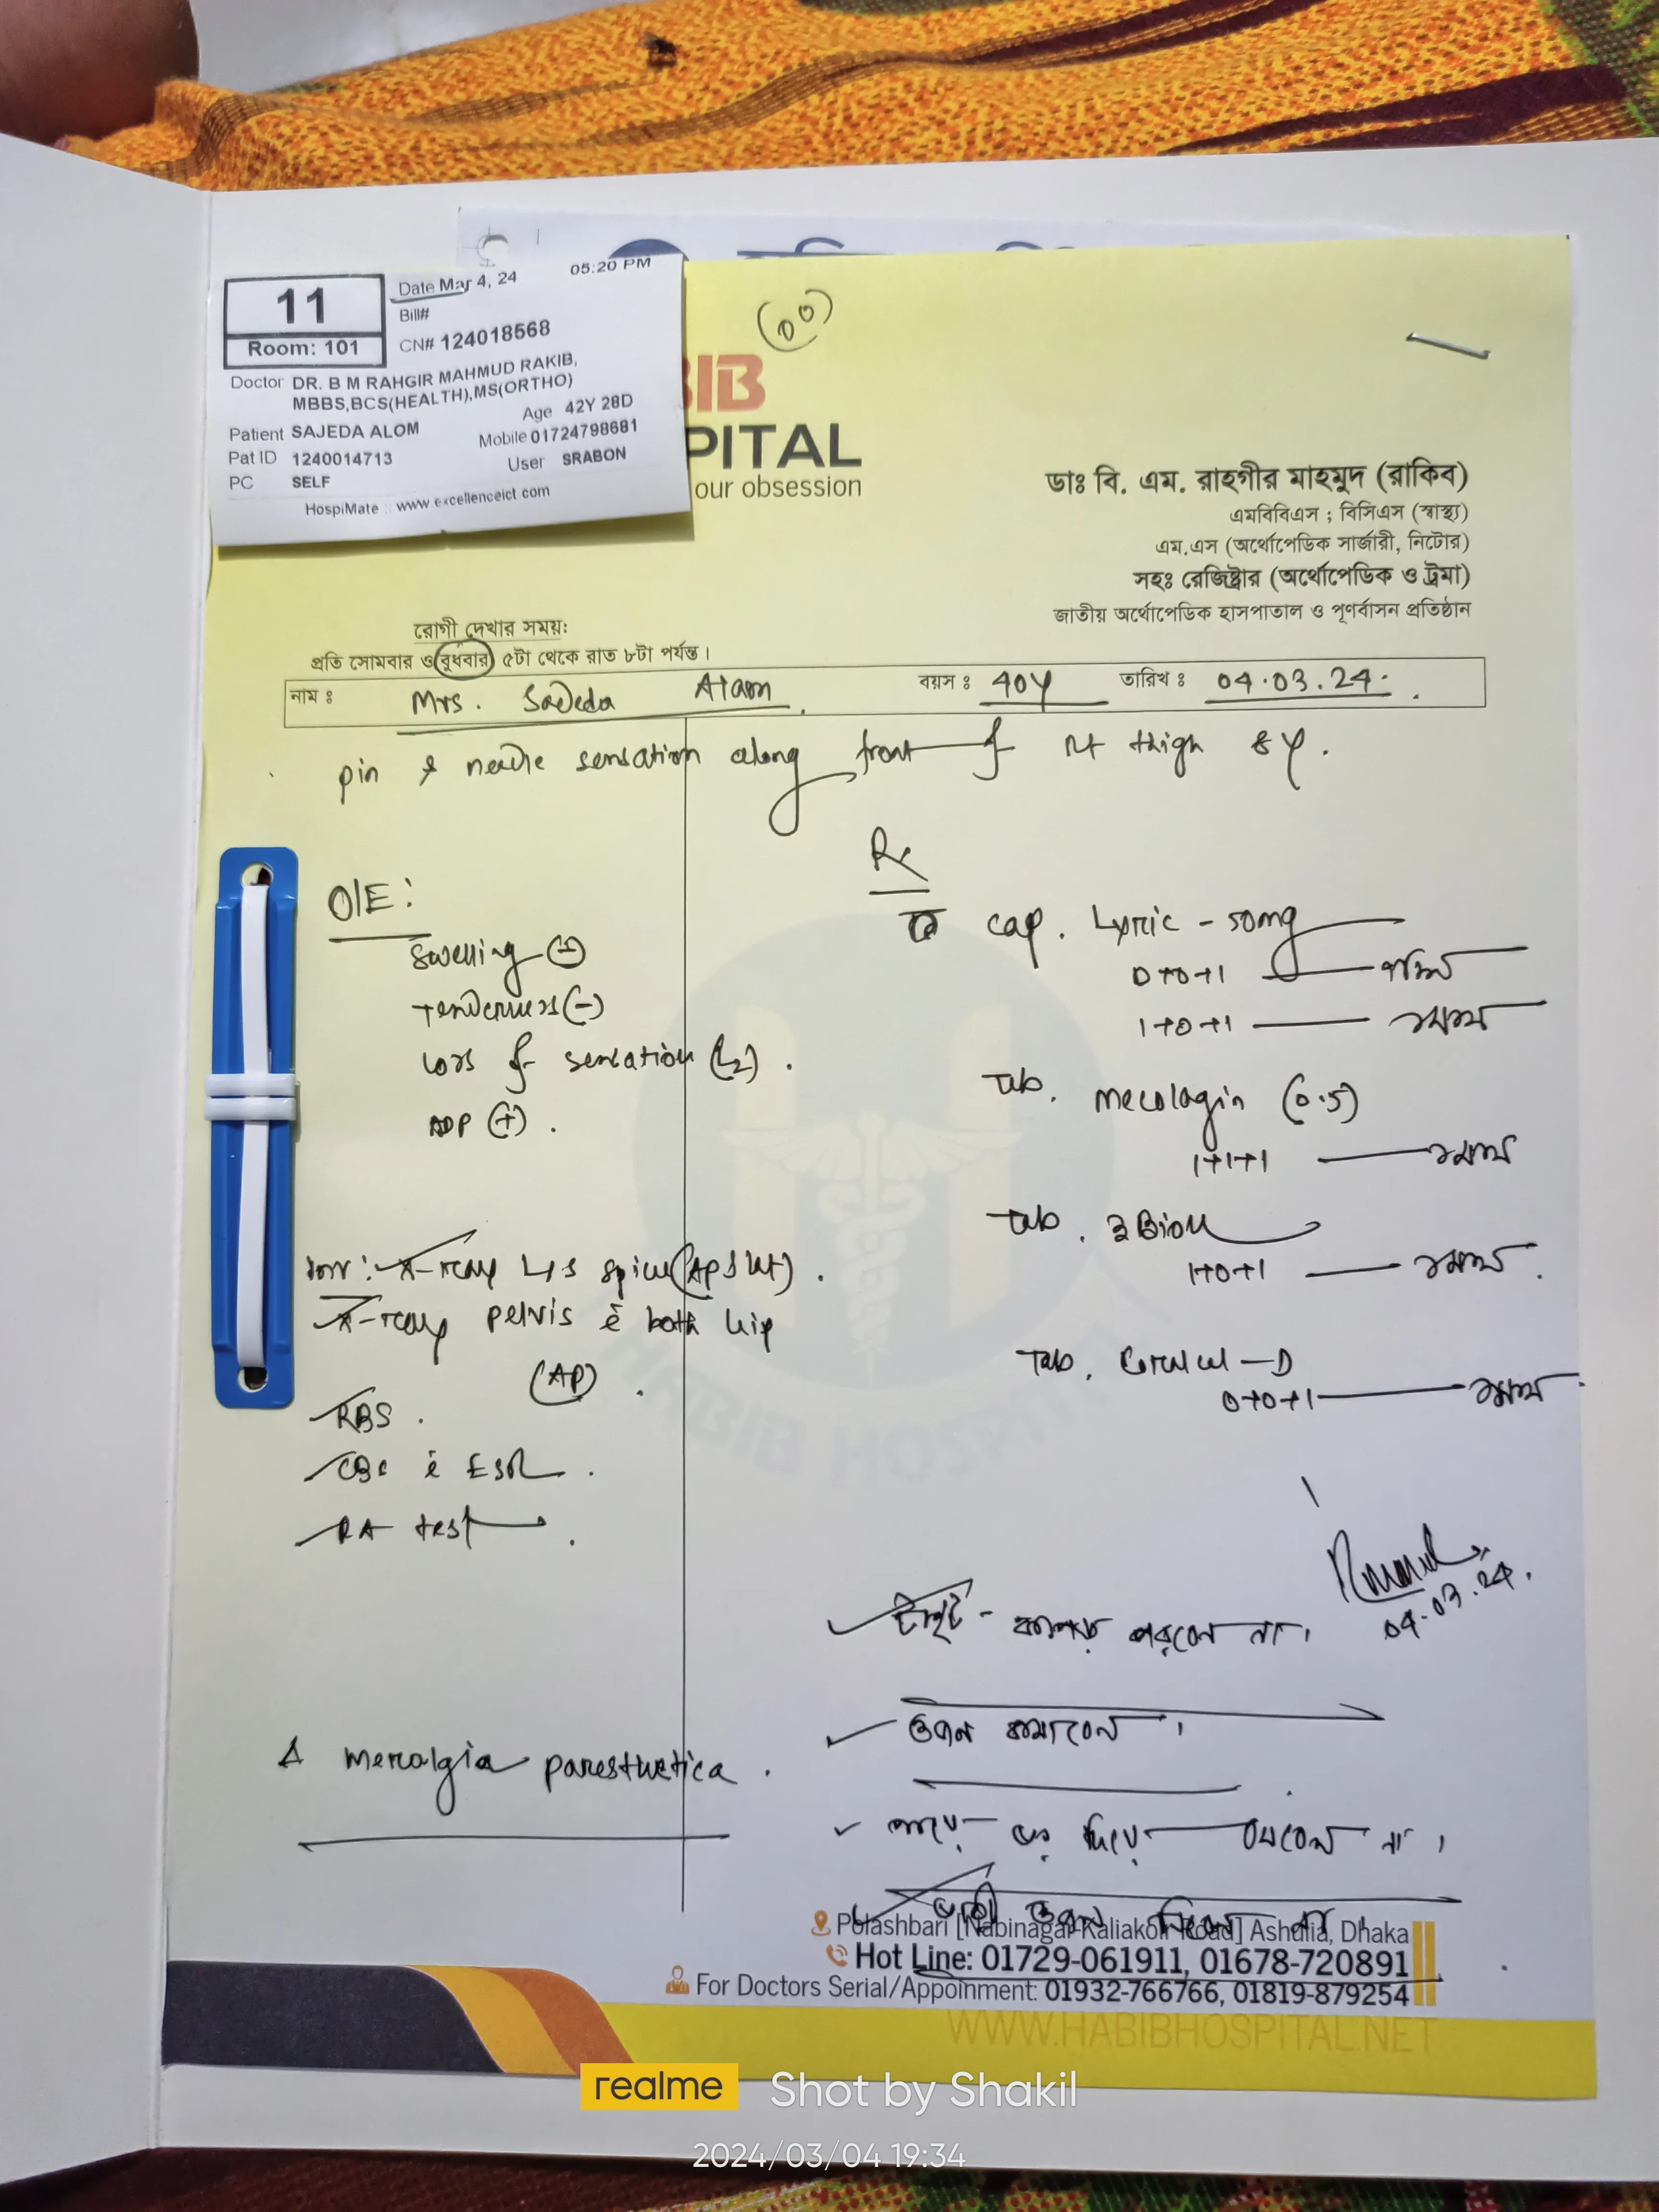 11
Room: 101
Date Mar 4, 24 05:20 PM
Bill#
CN# 124018568
Doctor DR. B M RAHGIR MAHMUD RAKIB,
MBBS,BCS(HEALTH),MS(ORTHO)
Age 42Y 28D
Patient SAJEDA ALOM
Mobile 01724798681
Pat ID 1240014713
User SRABON
PC SELF
HospiMate :: www.excellenceict.com
(00)
IB
PITAL
our obsession
ডাঃ বি. এম. রাহগীর মাহমুদ (রাকিব)
এমবিবিএস ; বিসিএস (স্বাস্থ্য)
এম.এস (অর্থোপেডিক সার্জারী, নিটোর)
সহঃ রেজিষ্ট্রার (অর্থোপেডিক ও ট্রমা)
জাতীয় অর্থোপেডিক হাসপাতাল ও পূণর্বাসন প্রতিষ্ঠান
রোগী দেখার সময়ঃ
প্রতি সোমবার ও বুধবার ৫টা থেকে রাত ৮টা পর্যন্ত।
নাম ঃ Mrs. Sajeda Alam বয়স ঃ 40y তারিখ ঃ 04.03.24.
pin & needle sensation along front of rt thigh
O/E:
Swelling (-)
Tenderness (-)
Loss of sensation (L2).
ADP (+).
Inv: X-ray L/S spine (AP & lat).
X-ray pelvis c̄ both hip
(AP).
RBS.
CBC c̄ ESR.
RA test.
Δ meralgia paresthetica.
Rx
cap. Lyric - 50mg
0+0+1
1+0+1
Tab. Mecolagin (0.5)
1+1+1
Tab. 3Bion
1+0+1
Tab. Coralcal-D
0+0+1
04.03.24.
টাইট - কাপড় পরবেন না।
ওজন কমাবেন।
পায়ে ভর দিয়ে বসবেন না।
ভারী ওজন নিবেন না।
Polashbari [Nabinagar-Kaliakoir Road] Ashulia, Dhaka
Hot Line: 01729-061911, 01678-720891
For Doctors Serial/Appoinment: 01932-766766, 01819-879254
WWW.HABIBHOSPITAL.NET
HABIB HOSPITAL
realme Shot by Shakil
2024/03/04 19:34